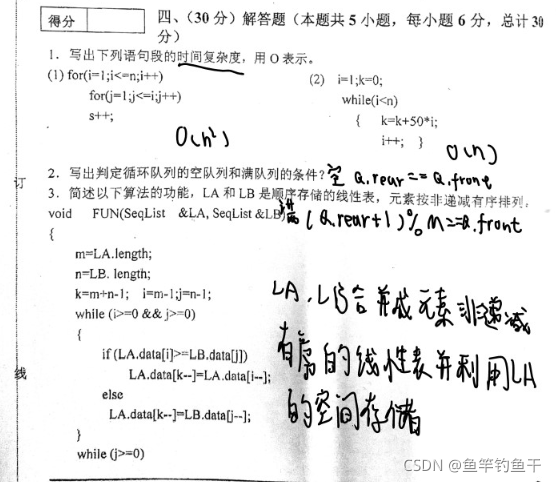 得分
四、（30 分）解答题（本题共 5 小题，每小题 6 分，总计 30
分）
1．写出下列语句段的时间复杂度，用 O 表示。
(1) for(i=1;i<=n;i++)
for(j=1;j<=i;j++)
s++;
O(n²)
(2) i=1;k=0;
while(i<n)
{ k=k+50*i;
i++; }
O(n)
2．写出判定循环队列的空队列和满队列的条件？空 Q.rear==Q.front
满 (Q.rear+1)%M==Q.front
3．简述以下算法的功能，LA 和 LB 是顺序存储的线性表，元素按非递减有序排列。
void FUN(SeqList &LA, SeqList &LB)
{
m=LA.length;
n=LB. length;
k=m+n-1; i=m-1;j=n-1;
while (i>=0 && j>=0)
{
if (LA.data[i]>=LB.data[j])
LA.data[k--]=LA.data[i--];
else
LA.data[k--]=LB.data[j--];
}
while (j>=0)
LA、LB合并成元素非递减
有序的线性表并利用LA
的空间存储
订
线
CSDN @鱼竿钓鱼干